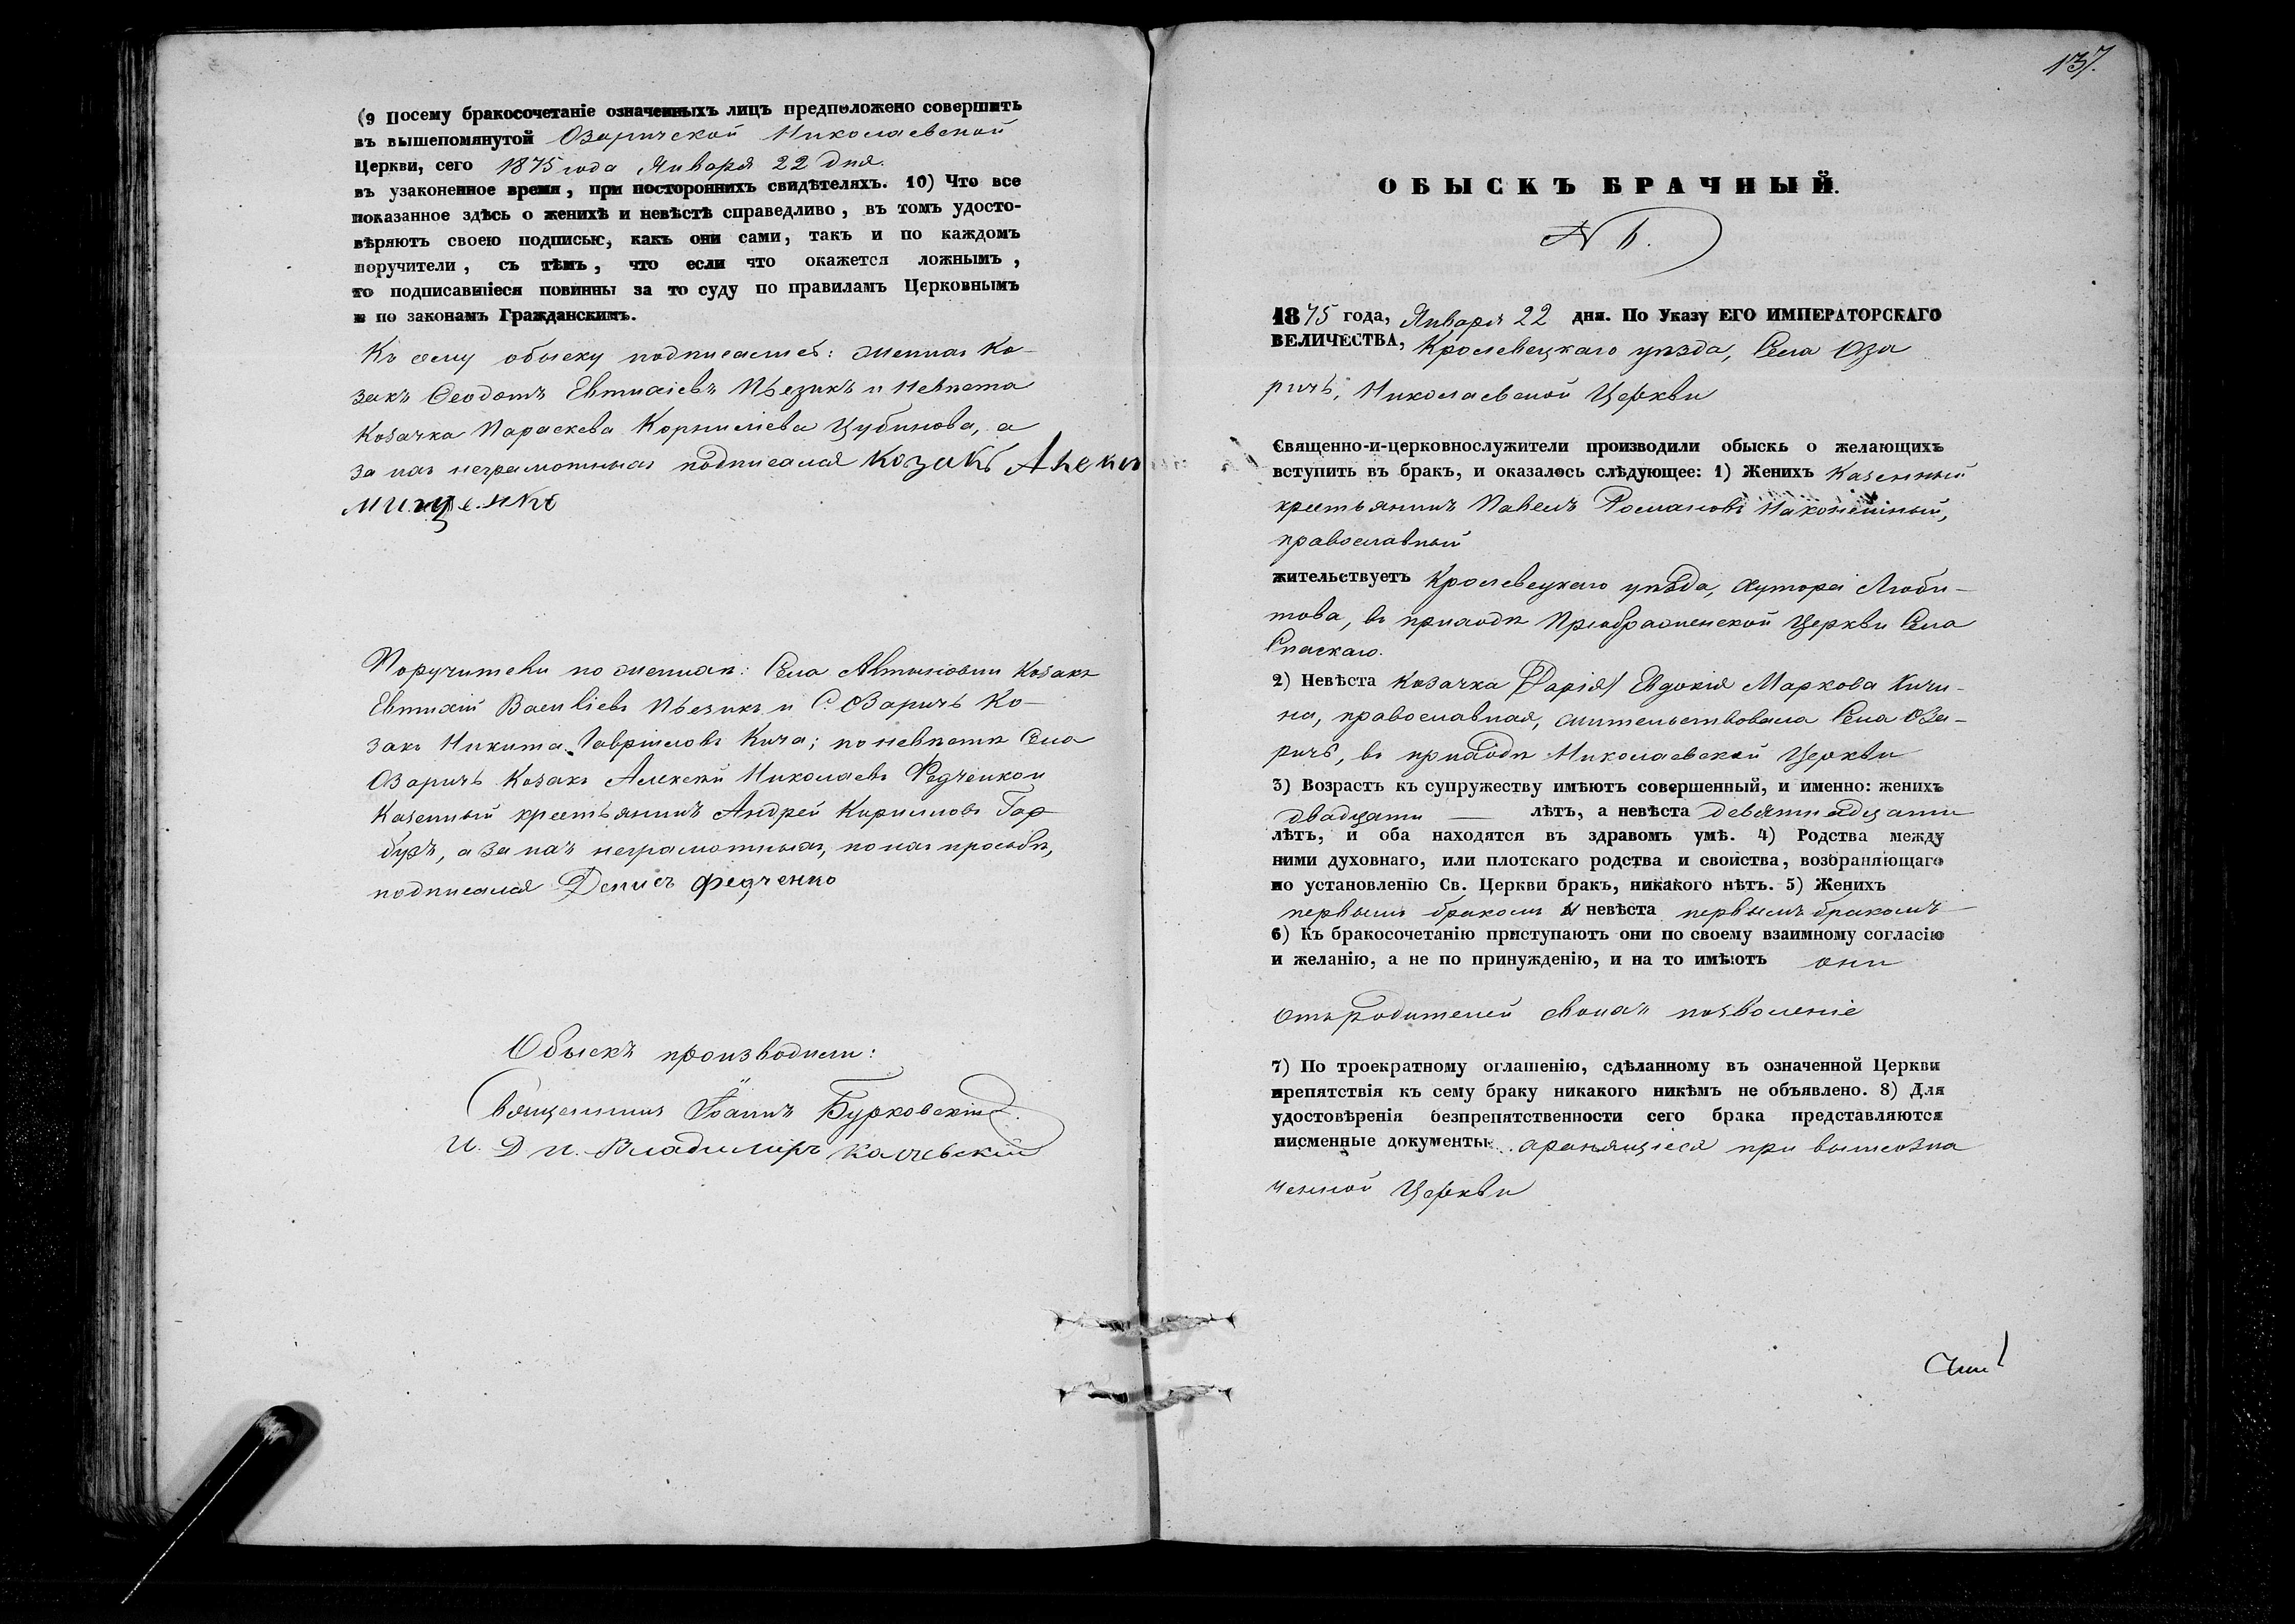 (9 Посему бракосочетаніе означенныхъ лицъ предположено совершить
въ вышепомянутой Озаричской Николаевской
Церкви, сего 1875 года Января 22 дня.
въ узаконенное время, при постороннихъ свидѣтеляхъ. 10) Что все
показанное здѣсь о женихѣ и невѣстѣ справедливо, въ томъ удосто-
вѣряютъ своею подписью, какъ они сами, такъ и по каждомъ
поручители, съ тѣмъ, что если что окажется ложнымъ,
то подписавшіеся повинны за то суду по правиламъ Церковнымъ
и по законамъ Гражданскимъ.
Къ сему обыску подписались: женихъ Ко-
закъ Ѳеодотъ Евтихіевъ Пьезикъ и Невѣста
Козачка Параскева Корниліева Цубинова, а
за нихъ неграмотныхъ подписался козакъ
мищенко
Поручители по женихѣ: Села Козакъ
Евтихій Василіевъ Пьезикъ и С. Озаричъ Ко-
закъ Никита Гавріиловъ Кича; по невѣстѣ Села
Озаричъ Козакъ Алексѣй Николаевъ Федченко и
Казенный крестьянинъ Андрей Кирилловъ Гар
бузъ, а за нихъ неграмотныхъ, по ихъ просьбѣ,
подписался Денисъ Федченко
Обыскъ производили:
Священникъ Іоаннъ Бурковскій.
И. Д. п. Владимиръ
137.
ОБЫСКЪ БРАЧНЫЙ.
N 6.
1875 года, Января 22 дня. По Указу ЕГО ИМПЕРАТОРСКАГО
ВЕЛИЧЕСТВА, Кролевецкаго уѣзда, Села Оза
ричъ, Николаевской Церкви
Священно-и-церковнослужители производили обыскъ о желающихъ
вступить въ бракъ, и оказалось слѣдующее: 1) Женихъ Казенный
крестьянинъ Павелъ Романовъ Наконешный,
православный
жительствуетъ Кролевецкаго уѣзда, хутора Люби-
това, въ приходѣ Преображенской Церкви Села
Спаскаго.
2) Невѣста Козачка (Дарія) Евдокія Маркова Кичи-
на, православная, жительствовала Села Оза-
ричъ, въ приходѣ Николаевской Церкви
3) Возрастъ къ супружеству имѣютъ совершенный, и именно: женихъ
двадцати — лѣтъ, а невѣста девятнадцати
лѣтъ, и оба находятся въ здравомъ умѣ. 4) Родства между
ними духовнаго, или плотскаго родства и свойства, возбраняющаго
по установленію Св. Церкви бракъ, никакого нѣтъ. 5) Женихъ
первымъ бракомъ и невѣста первымъ бракомъ
6) Къ бракосочетанію приступаютъ они по своему взаимному согласію
и желанію, а не по принужденію, и на то имѣютъ они
отъ родителей своихъ позволеніе
7) По троекратному оглашенію, сдѣланному въ означенной Церкви
препятствія къ сему браку никакого никѣмъ не объявлено. 8) Для
удостовѣренія безпрепятственности сего брака представляются
писменные документы: хранящіеся при вышеозна
ченной Церкви